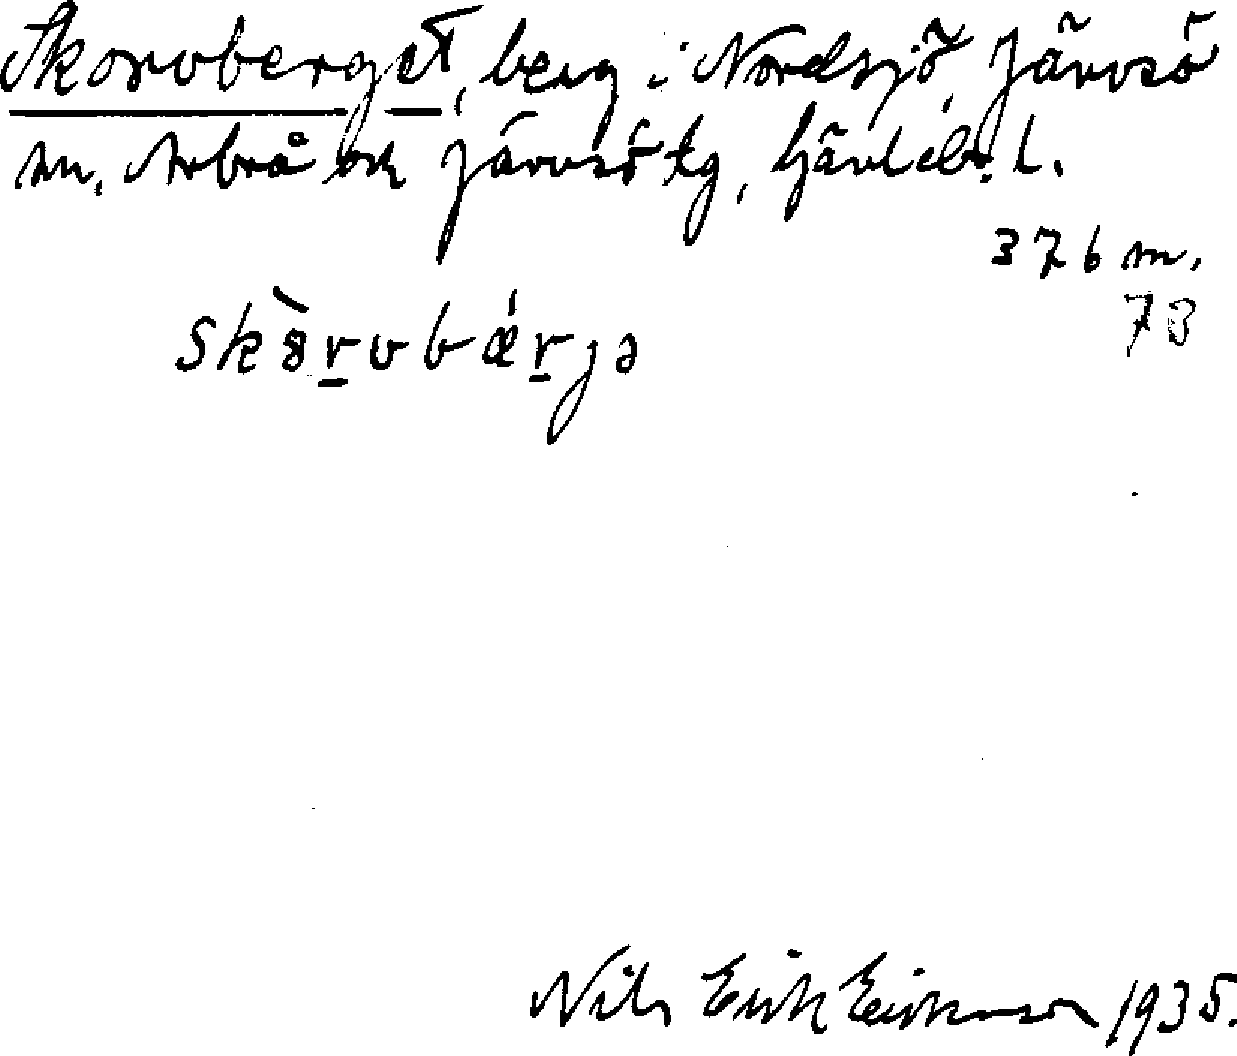 Skorvberget, berg i Nordsjö, Järvsö
sn, Arbrå och Järvsö tg, Gävleb. l.
376 m.
73
skȣ̀r̠vbǽr̠jə
Nils Erik Eriksson 1935.